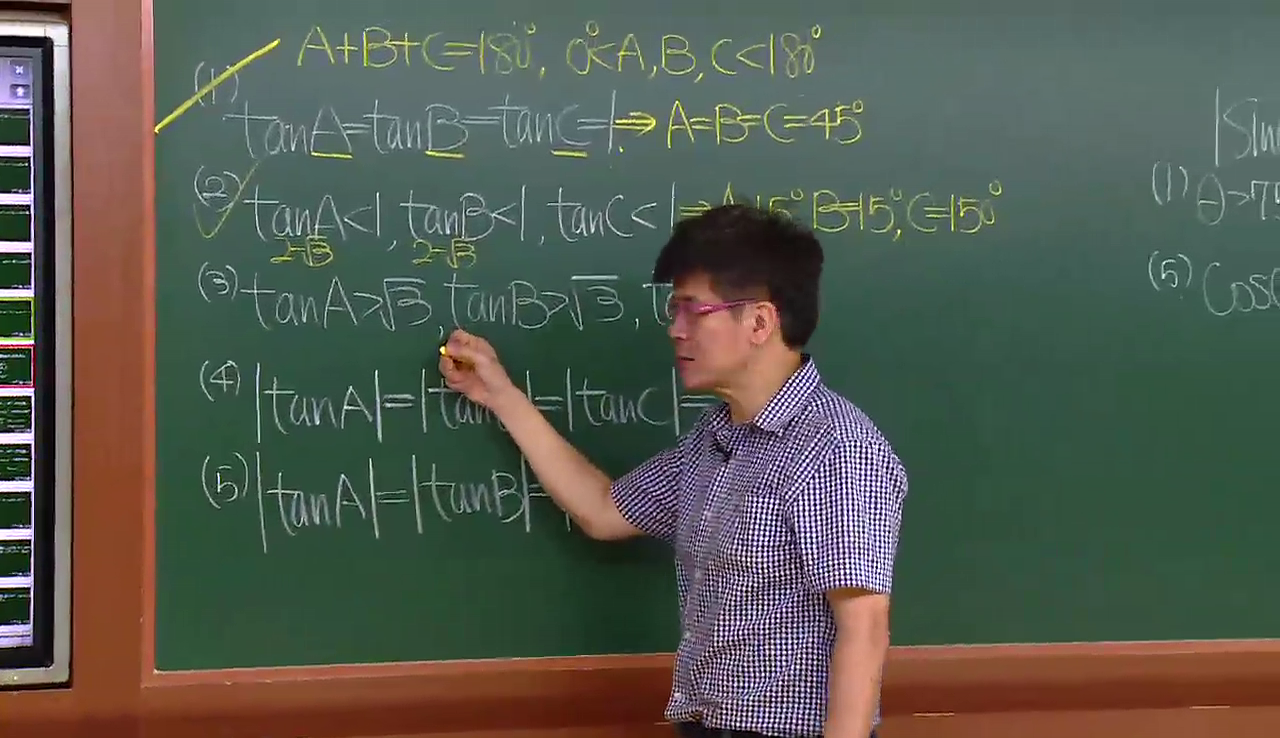 A+B+C=180°, 0°<A,B,C<180°
(1) tanA=tanB=tanC=1⇒A=B=C=45°
(2) tanA<1, tanB<1, tanC<1⇒ 15° B=15°, C=150°
2-√3 2-√3
(3) tanA>√3, tanB>√3,
(4) |tanA|=| |=|tanC|=
(5) |tanA|=|tanB|=
|Sin
(1) θ>7
(5) Cos